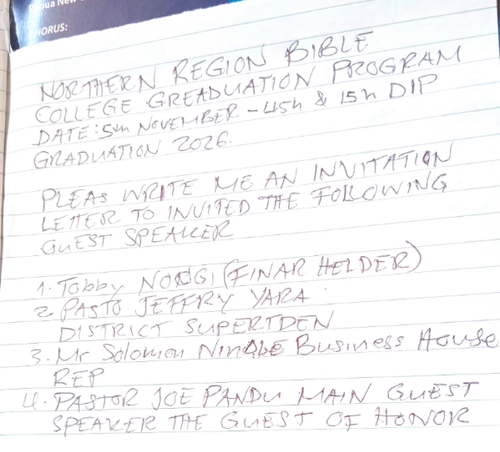 Papua New
HORUS:
NORTHERN REGION BIBLE
COLLEGE GREADUATION PROGRAM
DATE: 5th NOVEMBER - 45h & 15h DIP
GRADUATION 2026.
PLEAS WRITE ME AN INVITATION
LETTER TO INVITED THE FOLLOWING
GUEST SPEAKER
1. Tobby NOOGI (FINAR HELDER)
2. PASTO JEFFRY YARA
DISTRICT SUPERTDEN
3. Mr Solomon Ningle Business House
REP
4. PASTOR JOE PANDU MAIN GUEST
SPEAKER THE GUEST OF HONOR